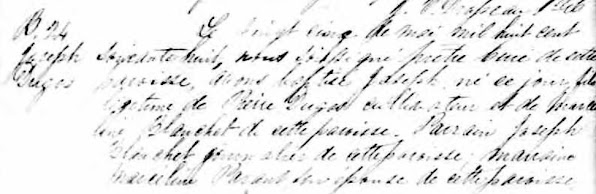 B. 24 Le vingt cinq de mai mil huit cent
Joseph soixante huit, nous soussigné prêtre curé de cette
Dugas paroisse, avons baptisé Joseph, né ce jour, fils
légitime de Pierre Dugas cultivateur et de Marce
line Blanchet de cette paroisse. Parrain Joseph
Blanchet journalier de cette paroisse, marraine
Marceline Parant son épouse de cette paroisse